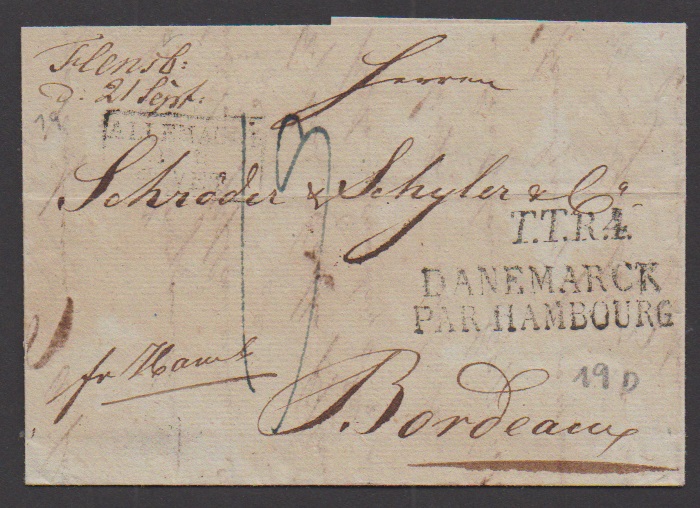 Flensb:
d. 21 Sept.
Herren
ALLEMAGNE
Schröder & Schyler & Co
T.T.R.4.
DANEMARCK
PAR HAMBOURG
fr Hamb
19 D
Bordeaux